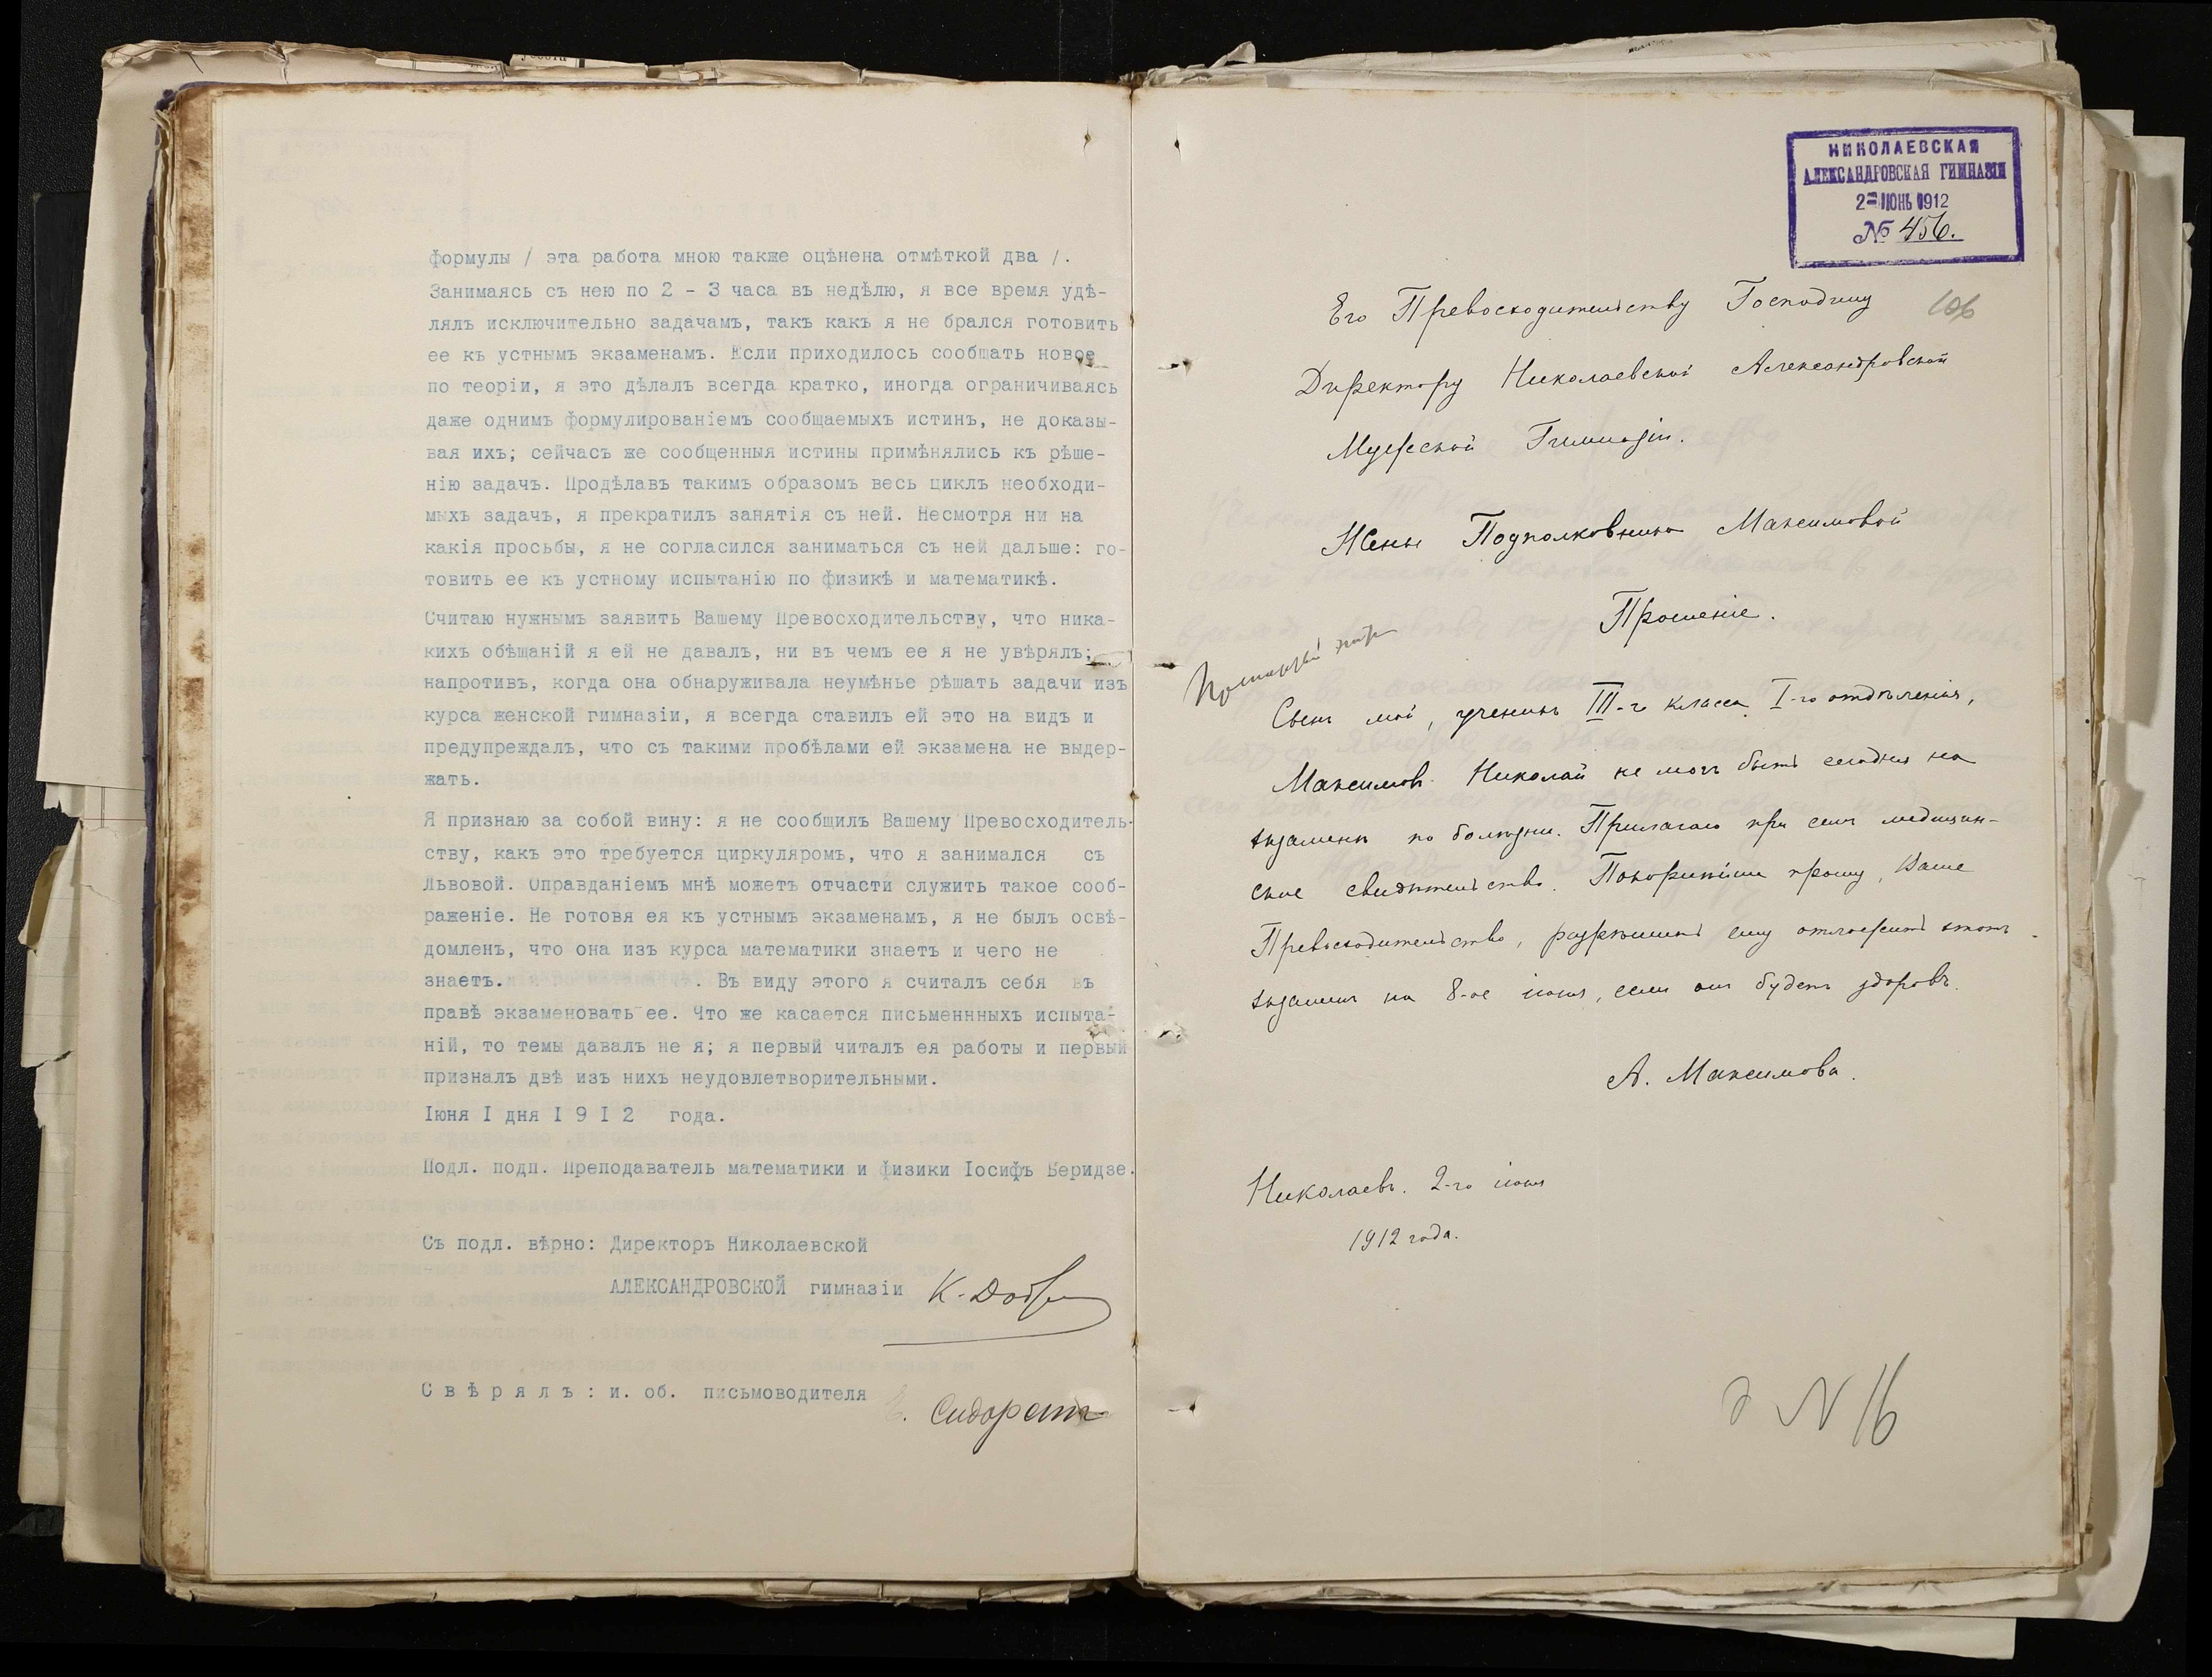 формулы / эта работа мною также оцѣнена отмѣткой два /.
Занимаясь съ нею по 2 - 3 часа въ недѣлю, я все время удѣ-
лялъ исключительно задачамъ, такъ какъ я не брался готовить
ее къ устнымъ экзаменамъ. Если приходилось сообщать новое
по теоріи, я это дѣлалъ всегда кратко, иногда ограничиваясь
даже однимъ формулированіемъ сообщаемыхъ истинъ, не доказы-
вая ихъ; сейчасъ же сообщенныя истины примѣнялись къ рѣше-
нію задачъ. Продѣлавъ такимъ образомъ весь циклъ необходи-
мыхъ задачъ, я прекратилъ занятія съ ней. Несмотря ни на
какія просьбы, я не согласился заниматься съ ней дальше: го-
товить ее къ устному испытанію по физикѣ и математикѣ.
Считаю нужнымъ заявить Вашему Превосходительству, что ника-
кихъ обѣщаній я ей не давалъ, ни въ чемъ ее я не увѣрялъ;
напротивъ, когда она обнаруживала неумѣнье рѣшать задачи изъ
курса женской гимназіи, я всегда ставилъ ей это на видъ и
предупреждалъ, что съ такими пробѣлами ей экзамена не выдер-
жать.
Я признаю за собой вину: я не сообщилъ Вашему Превосходитель-
ству, какъ это требуется циркуляромъ, что я занимался съ
Львовой. Оправданіемъ мнѣ можетъ отчасти служить такое сооб-
раженіе. Не готовя ея къ устнымъ экзаменамъ, я не былъ освѣ-
домленъ, что она изъ курса математики знаетъ и чего не
знаетъ. . Въ виду этого я считалъ себя въ
правѣ экзаменовать ее. Что же касается письменнныхъ испыта-
ній, то темы давалъ не я; я первый читалъ ея работы и первый
призналъ двѣ изъ нихъ неудовлетворительными.
Іюня I дня I 9 I 2 года.
Подл. подп. Преподаватель математики и физики Іосифъ Беридзе.
Съ подл. вѣрно: Директоръ Николаевской
АЛЕКСАНДРОВСКОЙ гимназіи
С в ѣ р я л ъ : и. об. письмоводителя
НИКОЛАЕВСКАЯ
АЛЕКСАНДРОВСКАЯ ГИМНАЗІЯ
2 ІЮНЬ 1912
№ 456.
106
Его Превосходительству Господину
Директору Николаевской Александровской
Мужской Гимназіи.
Жены Подполковника Максимовой
Прошеніе.
Сынъ мой, ученикъ III-го класса I-го отдѣленія,
Максимовъ Николай не могъ быть сегодня на
экзаменѣ по болѣзни. Прилагаю при семъ медицин-
ское свидѣтельство. Покорнѣйше прошу, Ваше
Превосходительство, разрѣшить ему отложить этотъ
экзаменъ на 8-ое іюня, если онъ будетъ здоровъ.
А. Максимова.
Николаевъ. 2-го іюня
1912 года.
N 16